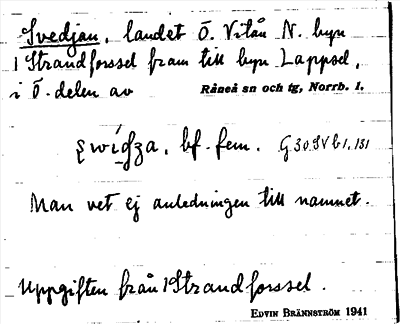 Svedjan, landet Ö. Vitån N. byn
1 Strandforssel fram till byn Lappsel,
i Ö. delen av Råneå sn och tg, Norrb. l.
bf. fem. G.30.SVb1, 131
Man vet ej anledningen till namnet.
Uppgiften från 1 Strandforssel.
EDVIN BRÄNNSTRÖM 1941